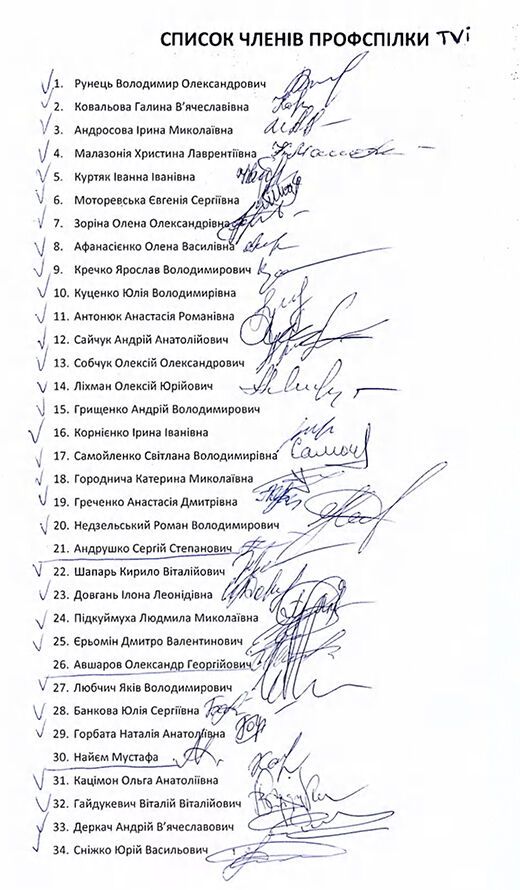 СПИСОК ЧЛЕНІВ ПРОФСПІЛКИ TVi
1. Рунець Володимир Олександрович
2. Ковальова Галина В’ячеславівна
3. Андросова Ірина Миколаївна
4. Малазонія Христина Лаврентіївна
5. Куртяк Іванна Іванівна
6. Моторевська Євгенія Сергіївна
7. Зоріна Олена Олександрівна
8. Афанасієнко Олена Василівна
9. Кречко Ярослав Володимирович
10. Куценко Юлія Володимирівна
11. Антонюк Анастасія Романівна
12. Сайчук Андрій Анатолійович
13. Собчук Олексій Олександрович
14. Ліхман Олексій Юрійович
15. Грищенко Андрій Володимирович
16. Корнієнко Ірина Іванівна
17. Самойленко Світлана Володимирівна
18. Городнича Катерина Миколаївна
19. Греченко Анастасія Дмитрівна
20. Недзельський Роман Володимирович
21. Андрушко Сергій Степанович
22. Шапарь Кирило Віталійович
23. Довгань Ілона Леонідівна
24. Підкуймуха Людмила Миколаївна
25. Єрьомін Дмитро Валентинович
26. Авшаров Олександр Георгійович
27. Любчич Яків Володимирович
28. Банкова Юлія Сергіївна
29. Горбата Наталія Анатоліївна
30. Найєм Мустафа
31. Кацімон Ольга Анатоліївна
32. Гайдукевич Віталій Віталійович
33. Деркач Андрій В’ячеславович
34. Сніжко Юрій Васильович